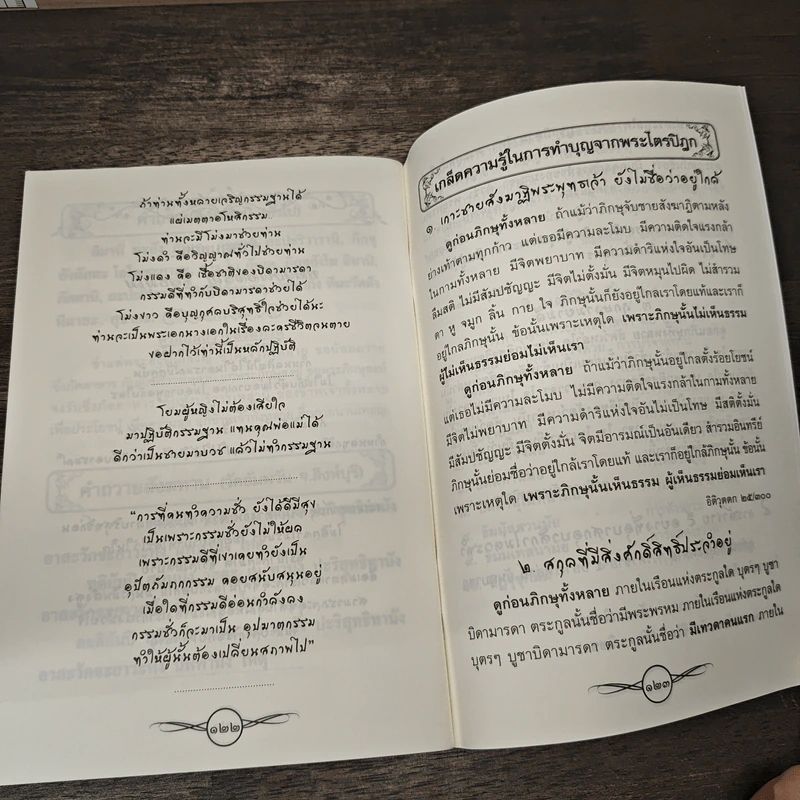 ถ้าท่านทั้งหลายเจริญกรรมฐานได้
แผ่เมตตาอโหสิกรรม
ท่านจะมีโม่งมาช่วยท่าน
โม่งดำ คือวิญญาณทั่วไปช่วยท่าน
โม่งแดง คือ เชื้อชาติของบิดามารดา
กรรมดีที่ทำกับบิดามารดาช่วยได้
โม่งขาว คือบุญกุศลบริสุทธิ์ใจช่วยได้นะ
ท่านจะเป็นพระเอกนางเอกในเรื่องละครชีวิตจนตาย
ขอฝากไว้เท่านี้เป็นหลักปฏิบัติ
โยมผู้หญิงไม่ต้องเสียใจ
มาปฏิบัติกรรมฐาน แทนคุณพ่อแม่ได้
ดีกว่าเป็นชายมาบวช แล้วไม่ทำกรรมฐาน
“การที่คนทำความชั่ว ยังได้ดีมีสุข
เป็นเพราะกรรมชั่วยังไม่ให้ผล
เพราะกรรมดีที่เขาเคยทำยังเป็น
อุปัตภัมภกกรรม คอยสนับสนุนอยู่
เมื่อใดที่กรรมดีอ่อนกำลังลง
กรรมชั่วก็จะมาเป็น อุปฆาตกรรม
ทำให้ผู้นั้นต้องเปลี่ยนสภาพไป”
๑๒๒
เกล็ดความรู้ในการทำบุญจากพระไตรปิฎก
๑ เกาะชายสังฆาฏิพระพุทธเจ้า ยังไม่ชื่อว่าอยู่ใกล้
ดูก่อนภิกษุทั้งหลาย ถ้าแม้ว่าภิกษุจับชายสังฆาฏิตามหลัง
ย่างเท้าตามทุกก้าว แต่เธอมีความละโมบ มีความติดใจแรงกล้า
ในกามทั้งหลาย มีจิตพยาบาท มีความดำริแห่งใจอันเป็นโทษ
ลืมสติ ไม่มีสัมปชัญญะ มีจิตไม่ตั้งมั่น มีจิตหมุนไปผิด ไม่สำรวม
ตา หู จมูก ลิ้น กาย ใจ ภิกษุนั้นก็ยังอยู่ไกลเราโดยแท้และเราก็
อยู่ไกลภิกษุนั้น ข้อนั้นเพราะเหตุใด เพราะภิกษุนั้นไม่เห็นธรรม
ผู้ไม่เห็นธรรมย่อมไม่เห็นเรา
ดูก่อนภิกษุทั้งหลาย ถ้าแม้ว่าภิกษุนั้นอยู่ไกลตั้งร้อยโยชน์
แต่เธอไม่มีความละโมบ ไม่มีความติดใจแรงกล้าในกามทั้งหลาย
มีจิตไม่พยาบาท มีความดำริแห่งใจอันไม่เป็นโทษ มีสติตั้งมั่น
มีสัมปชัญญะ มีจิตตั้งมั่น จิตมีอารมณ์เป็นอันเดียว สำรวมอินทรีย์
ภิกษุนั้นย่อมชื่อว่าอยู่ใกล้เราโดยแท้ และเราก็อยู่ใกล้ภิกษุนั้น ข้อนั้น
เพราะเหตุใด เพราะภิกษุนั้นเห็นธรรม ผู้เห็นธรรมย่อมเห็นเรา
อิติวุตตก ๒๕/๓๐๐
๒. สกุลที่มีสิ่งศักดิ์สิทธิ์ประจำอยู่
ดูก่อนภิกษุทั้งหลาย ภายในเรือนแห่งตระกูลใด บุตรๆ บูชา
บิดามารดา ตระกูลนั้นชื่อว่ามีพระพรหม ภายในเรือนแห่งตระกูลใด
บุตรๆ บูชาบิดามารดา ตระกูลนั้นชื่อว่า มีเทวดาคนแรก ภายใน
๑๒๓